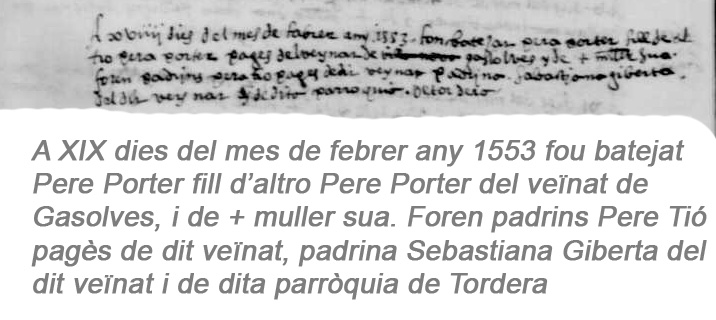 A xviiij dies del mes de febrer any 1553 fou batejat pera porter fill de al
tro pera porter pages del veynat de gasolves y de + muller sua.
foren padrins pera tio pages de dit veynat padrina sabastiana giberta
del dit veynat y de dita parroquia de tordera
A XIX dies del mes de febrer any 1553 fou batejat
Pere Porter fill d’altro Pere Porter del veïnat de
Gasolves, i de + muller sua. Foren padrins Pere Tió
pagès de dit veïnat, padrina Sebastiana Giberta del
dit veïnat i de dita parròquia de Tordera